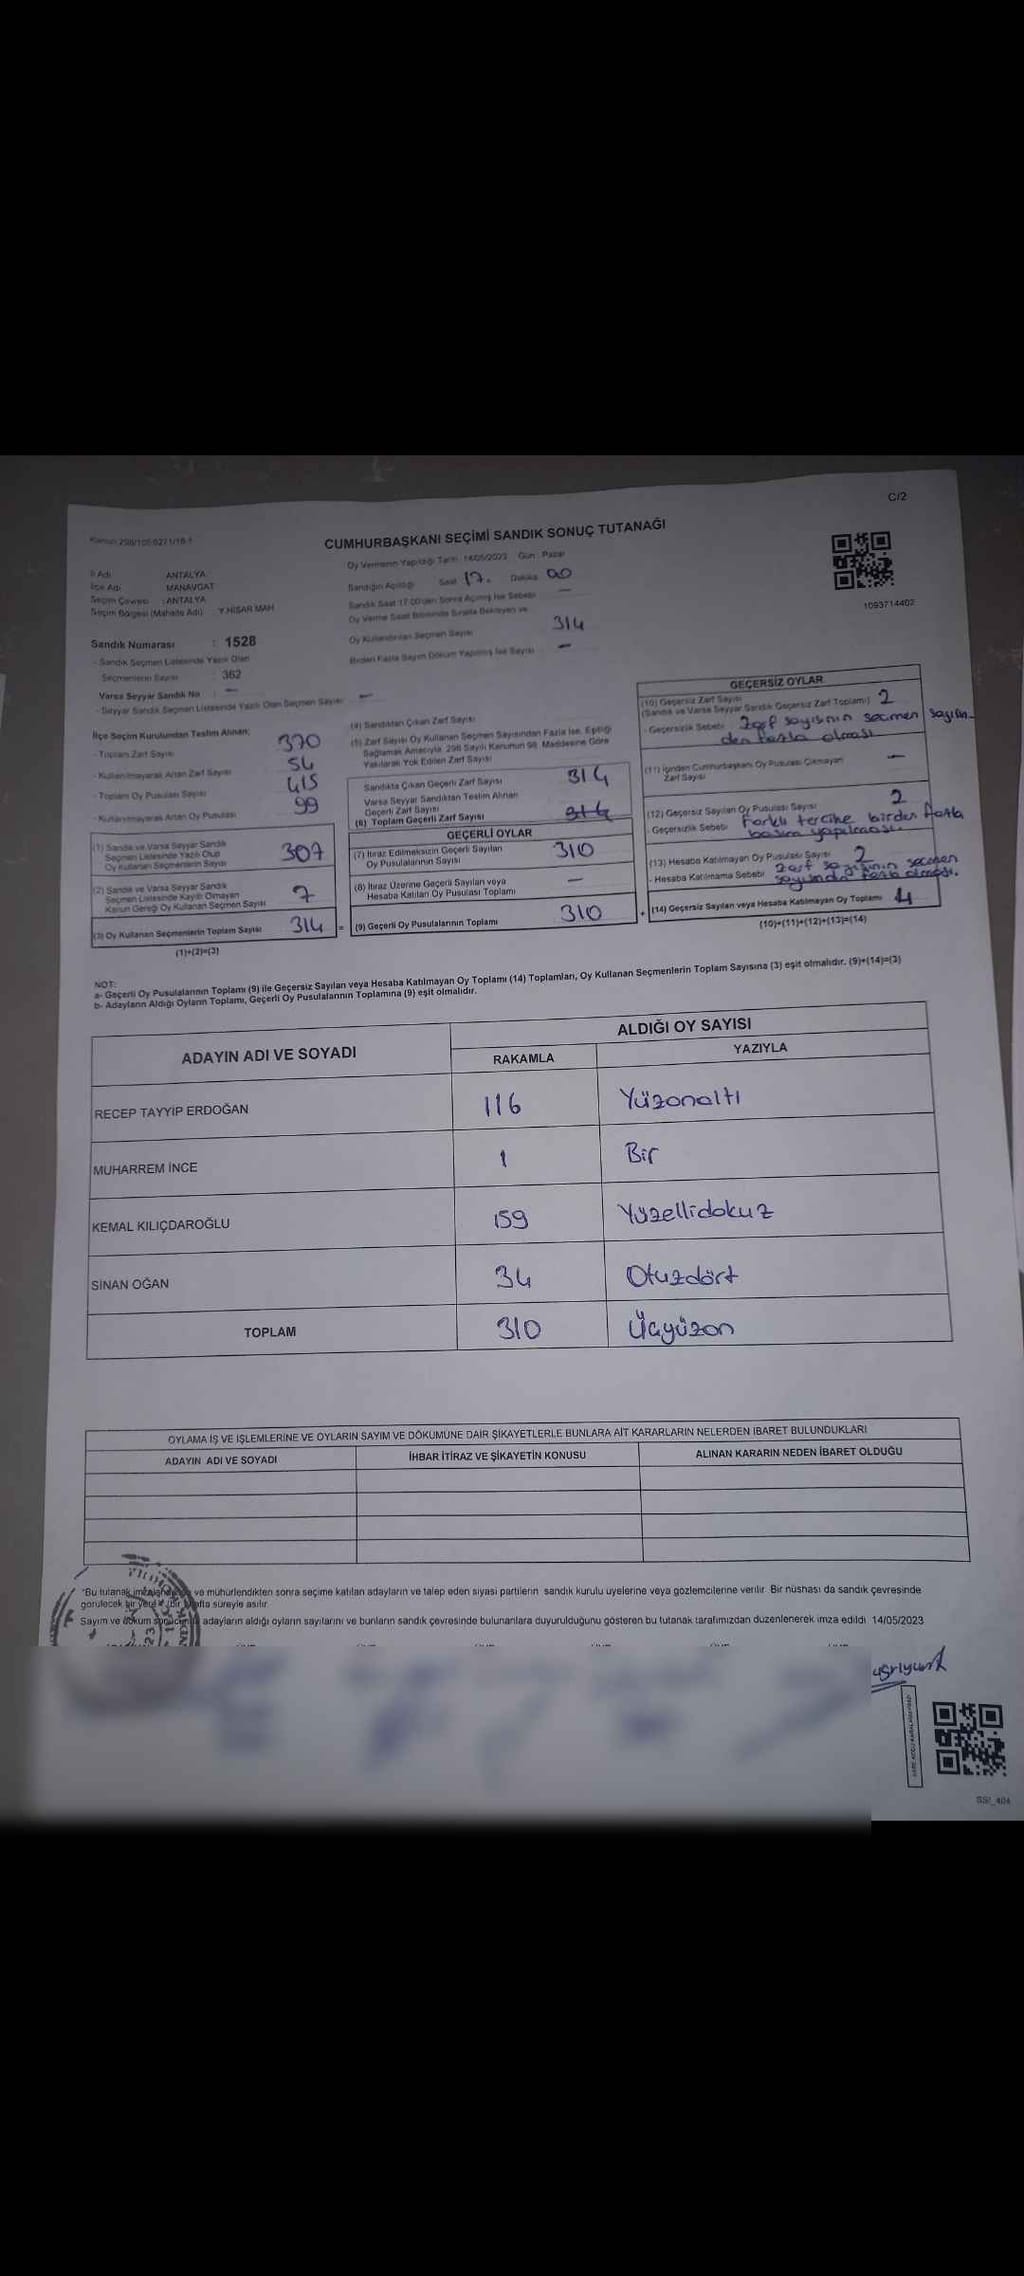 C/2
CUMHURBAŞKANI SEÇİMİ SANDIK SONUÇ TUTANAĞI
Oy Vermenin Yapıldığı Tarih : 14/05/2023 Gün : Pazar
İl Adı ANTALYA
İlçe Adı MANAVGAT
Seçim Çevresi : ANTALYA
Seçim Bölgesi (Mahalle Adı) : Y.HİSAR MAH
Sandığın Açıldığı Saat 17. Dakika 00
Sandık Saat 17.00'den Sonra Açılmış İse Sebebi —
Oy Verme Saati Bitiminde Sırada Bekleyen ve
Oy Kullandırılan Seçmen Sayısı 314
Birden Fazla Sayım Döküm Yapılmış İse Sayısı —
1093714402
Sandık Numarası : 1528
- Sandık Seçmen Listesinde Yazılı Olan
Seçmenlerin Sayısı : 362
Varsa Seyyar Sandık No : —
- Seyyar Sandık Seçmen Listesinde Yazılı Olan Seçmen Sayısı : —
İlçe Seçim Kurulundan Teslim Alınan;
- Toplam Zarf Sayısı 370
- Kullanılmayarak Artan Zarf Sayısı 54
- Toplam Oy Pusulası Sayısı 415
- Kullanılmayarak Artan Oy Pusulası 99
(1) Sandık ve Varsa Seyyar Sandık
Seçmen Listesinde Yazılı Olup
Oy Kullanan Seçmenlerin Sayısı 307
(2) Sandık ve Varsa Seyyar Sandık
Seçmen Listesinde Kayıtlı Olmayan
Kanun Gereği Oy Kullanan Seçmen Sayısı 7
(3) Oy Kullanan Seçmenlerin Toplam Sayısı 314
(1)+(2)=(3)
(4) Sandıktan Çıkan Zarf Sayısı
(5) Zarf Sayısı Oy Kullanan Seçmen Sayısından Fazla İse, Eşitliği
Sağlamak Amacıyla, 298 Sayılı Kanunun 98. Maddesine Göre
Yakılarak Yok Edilen Zarf Sayısı
Sandıkta Çıkan Geçerli Zarf Sayısı 314
Varsa Seyyar Sandıktan Teslim Alınan
Geçerli Zarf Sayısı
(6) Toplam Geçerli Zarf Sayısı 314
GEÇERLİ OYLAR
(7) İtiraz Edilmeksizin Geçerli Sayılan
Oy Pusulalarının Sayısı 310
(8) İtiraz Üzerine Geçerli Sayılan veya
Hesaba Katılan Oy Pusulası Toplamı —
= (9) Geçerli Oy Pusulalarının Toplamı 310
GEÇERSİZ OYLAR
(10) Geçersiz Zarf Sayısı
(Sandık ve Varsa Seyyar Sandık Geçersiz Zarf Toplamı) 2
- Geçersizlik Sebebi : Zarf sayısının seçmen sayısın-
den fazla olması
(11) İçinden Cumhurbaşkanı Oy Pusulası Çıkmayan
Zarf Sayısı —
(12) Geçersiz Sayılan Oy Pusulası Sayısı 2
- Geçersizlik Sebebi : Farklı tercihe birden fazla
basım yapılması.
(13) Hesaba Katılmayan Oy Pusulası Sayısı 2
- Hesaba Katılmama Sebebi : Zarf sayısının seçmen
sayısından fazla olması.
+ (14) Geçersiz Sayılan veya Hesaba Katılmayan Oy Toplamı 4
(10)+(11)+(12)+(13)=(14)
NOT:
a- Geçerli Oy Pusulalarının Toplamı (9) ile Geçersiz Sayılan veya Hesaba Katılmayan Oy Toplamı (14) Toplamları, Oy Kullanan Seçmenlerin Toplam Sayısına (3) eşit olmalıdır. (9)+(14)=(3)
b- Adayların Aldığı Oyların Toplamı, Geçerli Oy Pusulalarının Toplamına (9) eşit olmalıdır.
ADAYIN ADI VE SOYADI
ALDIĞI OY SAYISI
RAKAMLA YAZIYLA
RECEP TAYYİP ERDOĞAN 116 Yüzonaltı
MUHARREM İNCE 1 Bir
KEMAL KILIÇDAROĞLU 159 Yüzellidokuz
SİNAN OĞAN 34 Otuzdört
TOPLAM 310 Üçyüzon
OYLAMA İŞ VE İŞLEMLERİNE VE OYLARIN SAYIM VE DÖKÜMÜNE DAİR ŞİKAYETLERLE BUNLARA AİT KARARLARIN NELERDEN İBARET BULUNDUKLARI
ADAYIN ADI VE SOYADI İHBAR İTİRAZ VE ŞİKAYETİN KONUSU ALINAN KARARIN NEDEN İBARET OLDUĞU
"Bu tutanak ve mühürlendikten sonra seçime katılan adayların ve talep eden siyasi partilerin sandık kurulu üyelerine veya gözlemcilerine verilir. Bir nüshası da sandık çevresinde
görülecek bir yere bir hafta süreyle asılır.
Sayım ve döküm adayların aldığı oyların sayılarını ve bunların sandık çevresinde bulunanlara duyurulduğunu gösteren bu tutanak tarafımızdan düzenlenerek imza edildi 14/05/2023